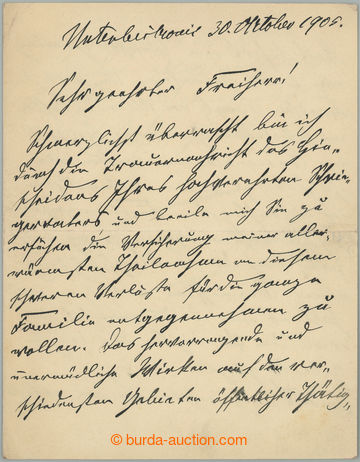 Unterberkovic 30. Oktober 1905.
Sehr geehrter Freiherr!
Schmerzlichst überrascht bin ich
durch die Trauernachricht des Hin-
scheidens Ihres hochverehrten Schwie-
gervaters und beeile mich Sie zu
ersuchen die Versicherung meiner aller-
wärmsten Theilnahme an diesem
schweren Verluste für die ganze
Familie entgegennehmen zu
wollen. Das hervorragende und
unermüdliche Wirken auf den ver-
schiedensten Gebieten öffentlicher Thätig-
© burda-auction.com